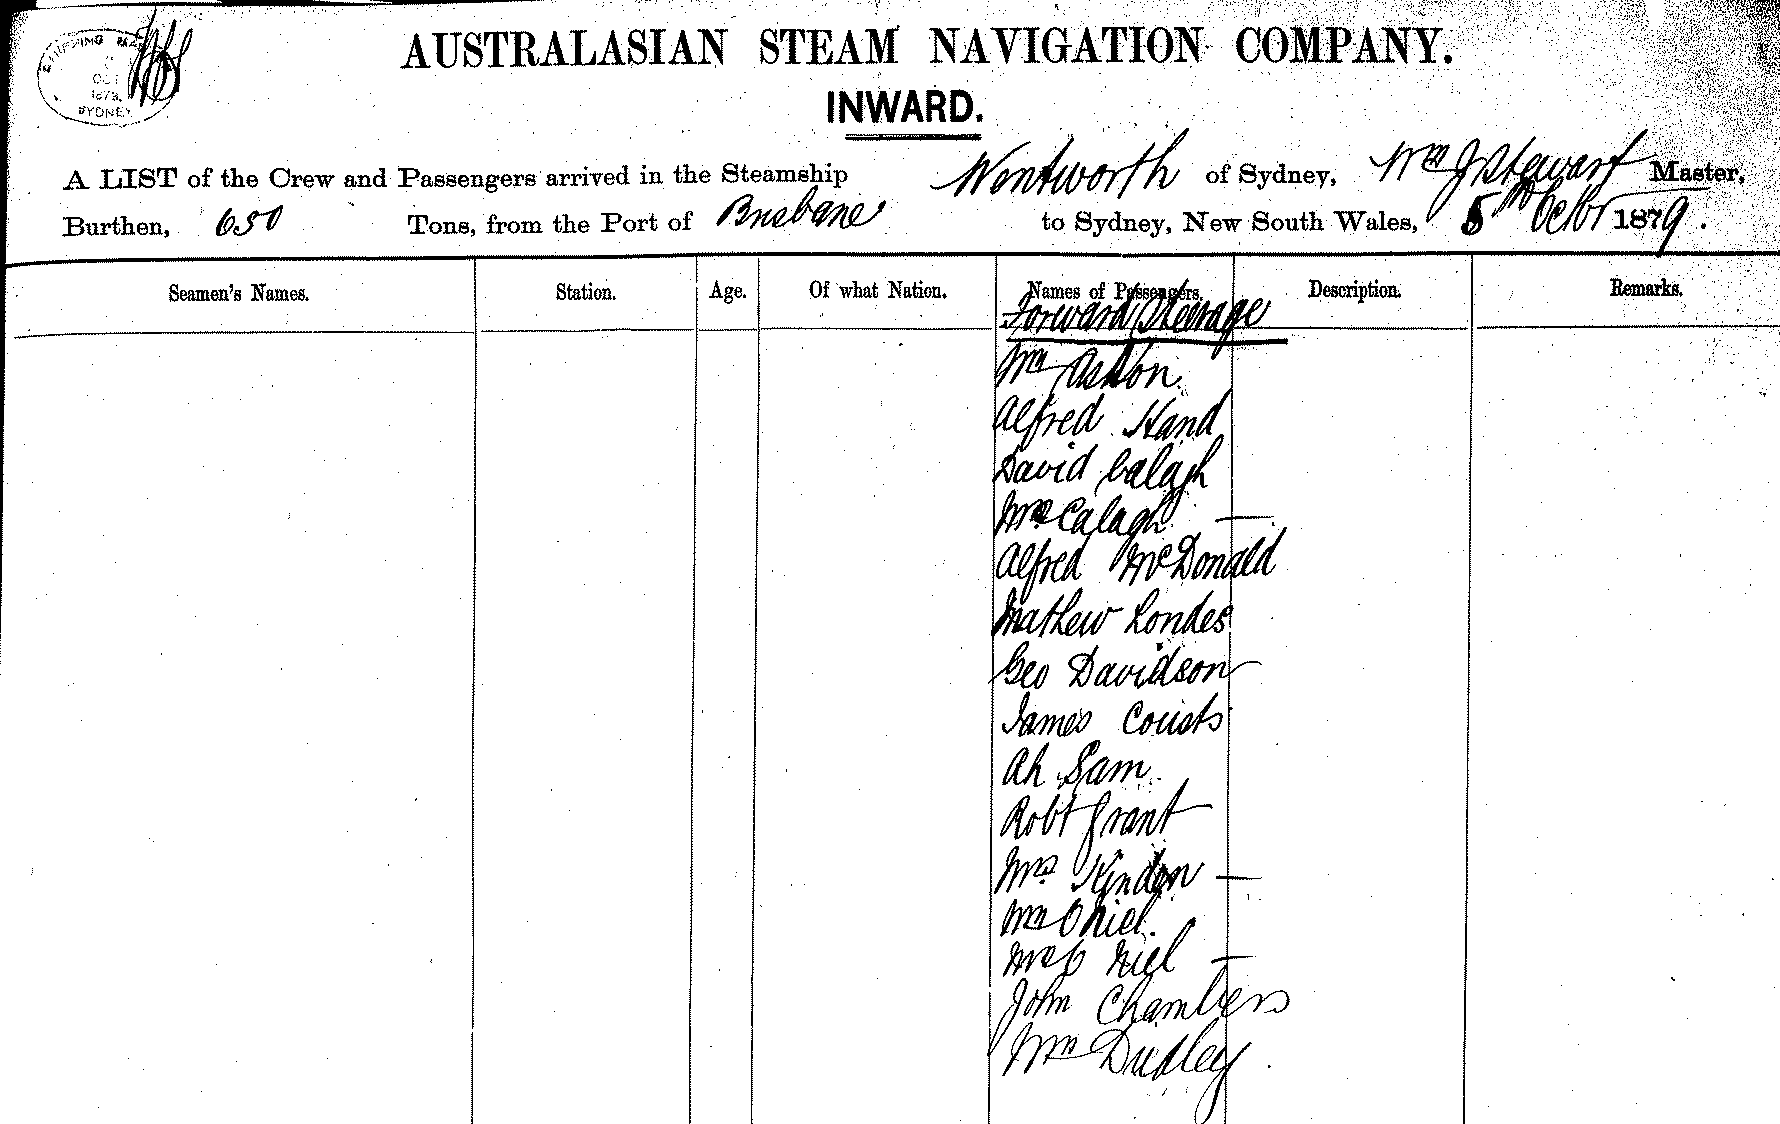 SHIPPING MA
OCT
1879.
SYDNEY
AUSTRALASIAN STEAM NAVIGATION COMPANY.
INWARD.
A LIST of the Crew and Passengers arrived in the Steamship Wentworth of Sydney, Wm J Stewart Master,
Burthen, 650 Tons, from the Port of Brisbane to Sydney, New South Wales, 5th Octbr 1879.
Seamen's Names. Station. Age. Of what Nation. Names of Passengers. Description. Remarks.
Forward Steerage
Wm Ashton
Alfred Hand
David Calagh
Mrs Calagh —
Alfred McDonald
Mathew Londes
Geo Davidson
James Coutts
Ah Sam
Robt Grant
Mrs Kindon —
Wm O Niel.
Mrs O Niel —
John Chambers
Wm Dudley